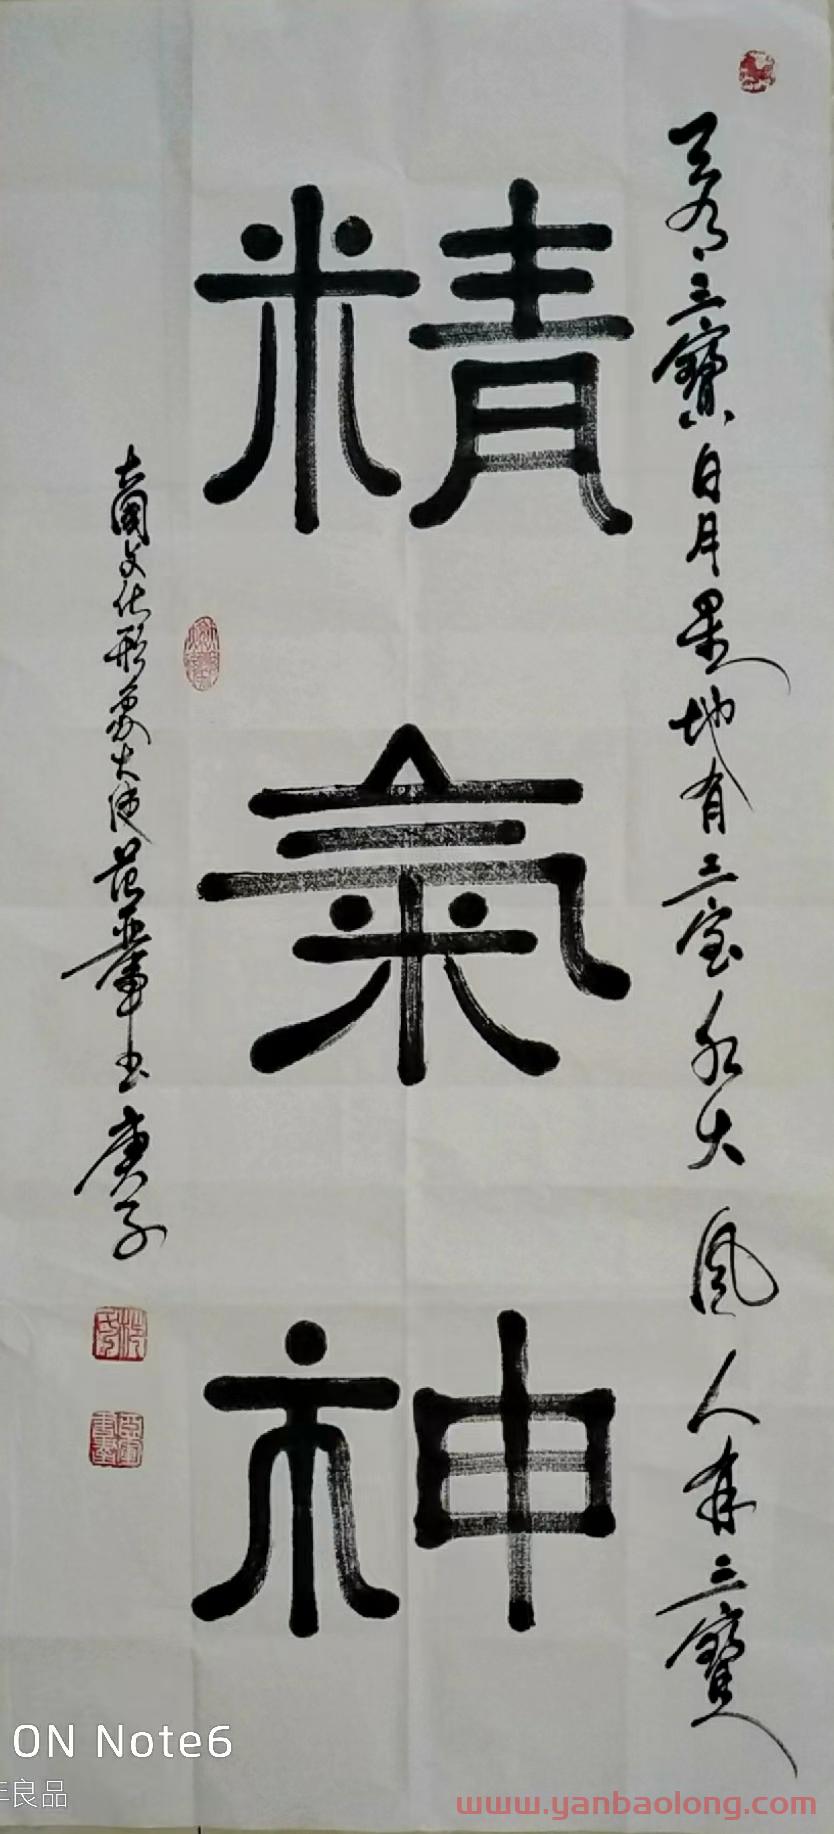 天有三寶日月星地有三宝水火風人有三寶
精
氣
神
大國文化形象大使范
书庚子
ON Note6
良品
www.yanbaolong.com